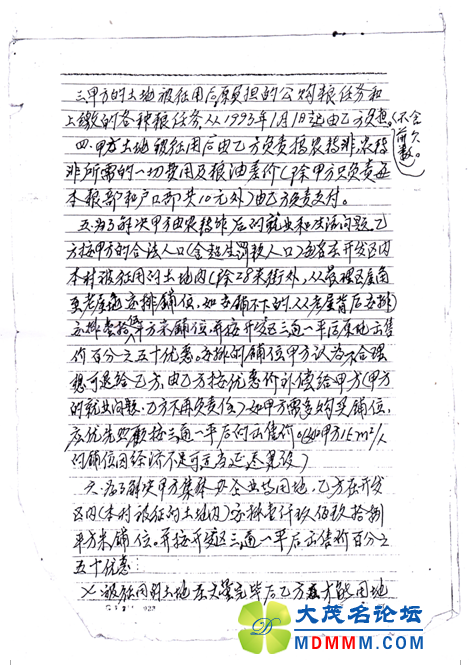 三.甲方的土地被征用后原负担的公购粮任务和
上缴的各种粮任务,从1993年1月1日起由乙方负担。(不含前欠数)。
四.甲方土地被征用后由乙方负责搞农转非,农转
非所需的一切费用及粮油差价(除甲方只负责每
本粮部和户口部共10元外)由乙方负责支付。
五.为了解决甲方由农转非后的就业和生活问题,乙
方按甲方的合法人口(含超生罚款人口)每人在开发区内
本村被征用的土地内(除28米街外,从
至老屋地安排铺位,如安铺不下的,从老屋背后安排)
安排壹拾伍平方米铺位,并按开发区三通一平后基地出售
价百分之五十优惠。安排的铺位甲方认为不合理
想可退给乙方,由乙方按优惠价补偿给甲方(甲方
的就业问题,乙方不再负责任)如甲方需多购买铺位,
应优先照顾按三通一平后的出售价。(如甲方15m²/人
的铺位因经济不足可适当延迟建设)
六.为了解决甲方集体办企业场用地,乙方在开发
区内(本村被征的土地内)安排壹仟玖佰玖拾捌
平方米铺位。并按开发区三通一平后出售价百分之
五十优惠:
七.被征用的土地在文签完毕后乙方才能用地
大茂名论坛
MDMMM.COM